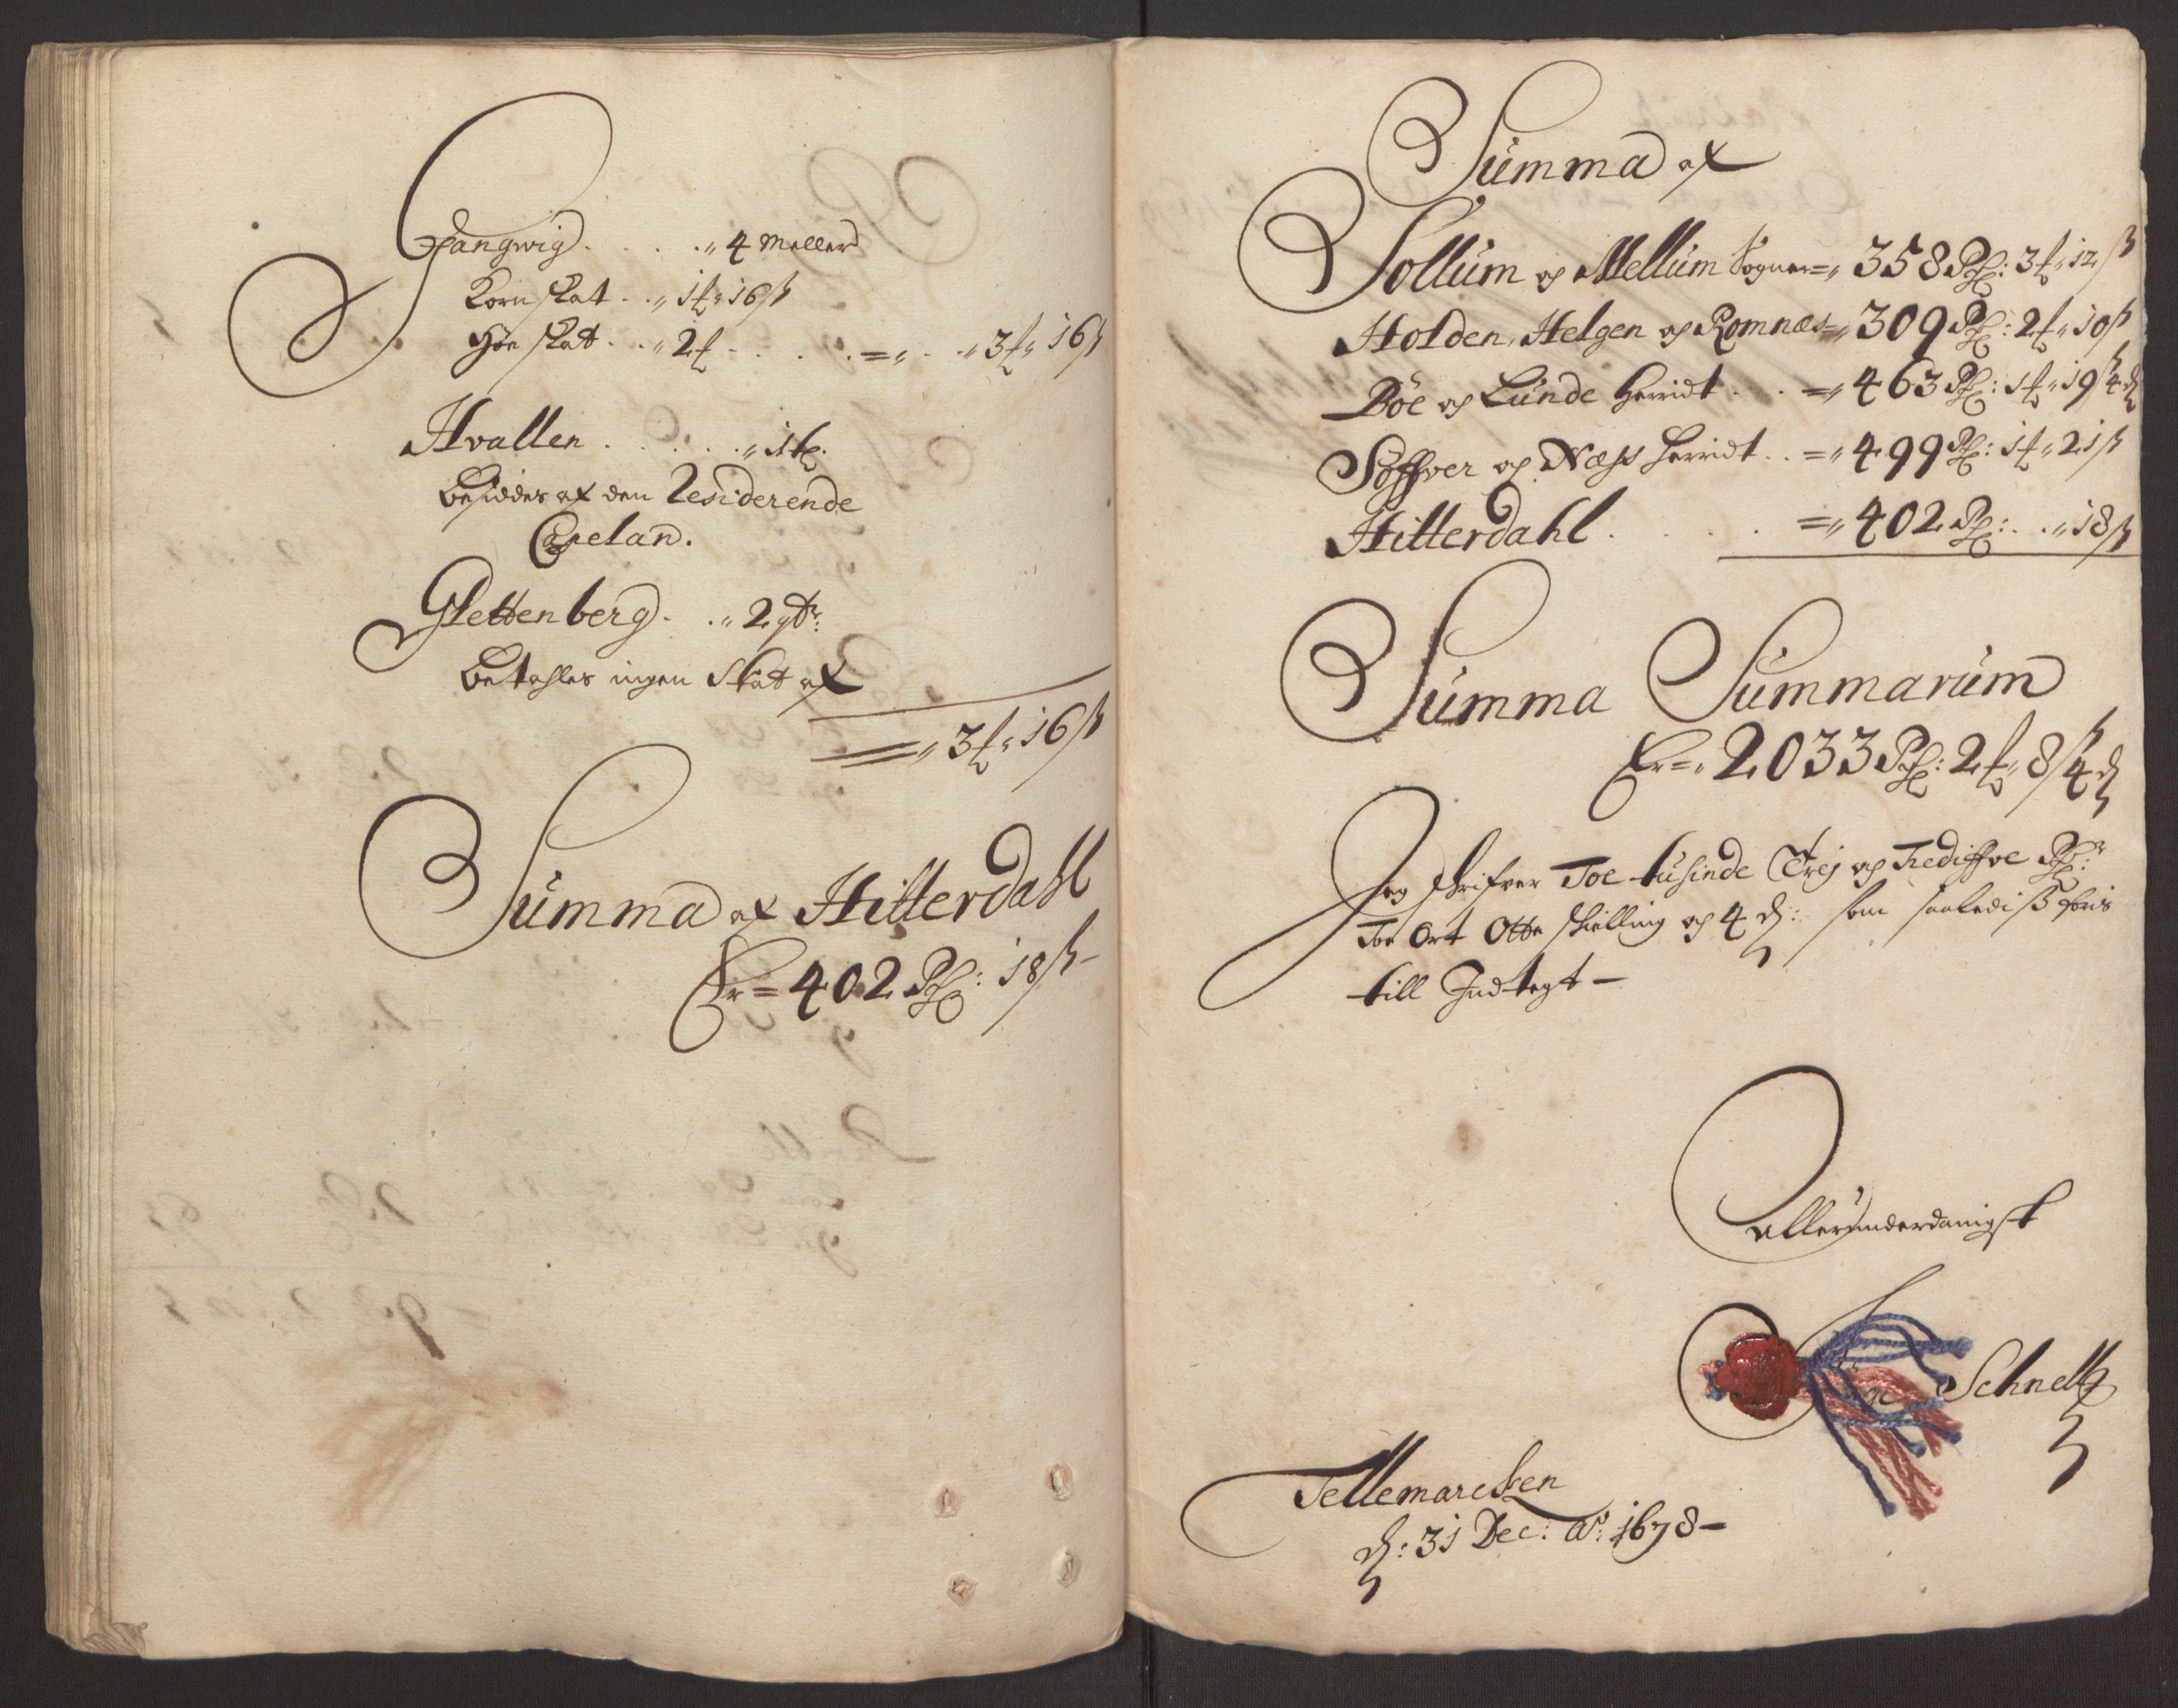 Spangwig . . . . „ 4 Meller
Kornskat . . „ 1 f „ 16 ß
Høe skat . . „ 2 f - . . . . = „ . . „ 3 f „ 16 ß
Hvallen . . . . . „ 1 t
besiddes af den Residerende
Capelan.
Glettenberg . . „ 2 gtr:
betahles ingen Skat af
= „ 3 f „ 16 ß
Summa af Hitterdahl
Er = 402 Rd: 18 ß -
Summa af
Sollum og Mellum Sogner = „ 358 Rd: 3 f „ 12 ß
Holden, Helgen og Romnæs = „ 309 Rd: 2 f „ 10 ß
Bøe og Lunde Herridt . . = „ 463 Rd: 1 f „ 19 ß 4 d
Søffver og Næss Herridt . . = „ 499 Rd: 1 f „ 21 ß
Hitterdahl . . . . = „ 402 Rd: . . „ 18 ß
Summa Summarum
Er = „ 2033 Rd: 2 f „ 8 ß 4 d
Jeg skrifver Toe tusinde Trej og Trediffve Rdr:
Toe Ort Otte skielling og 4 d: som saaledis føris
till Indtegt -
allerunderdanigst
Schnell
Tellemarcken
d: 31 Dec: Ao: 1678 -